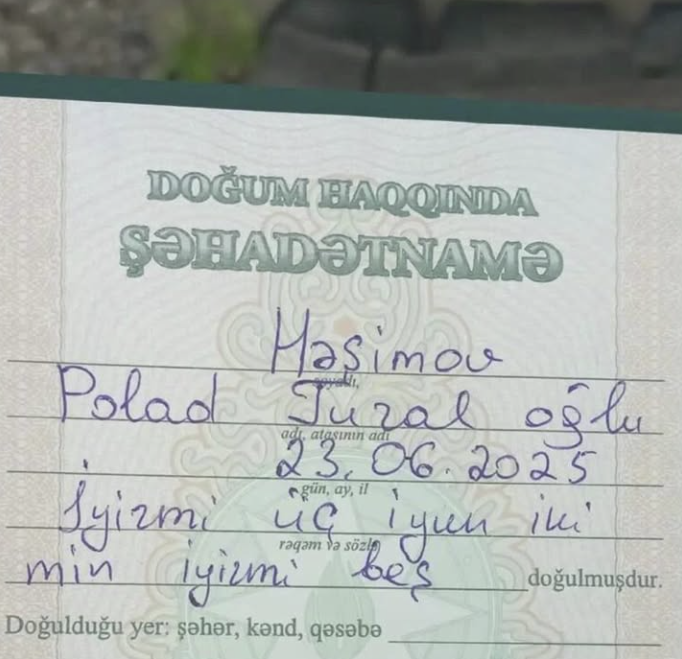 DOĞUM HAQQINDA
ŞƏHADƏTNAMƏ
Həşimov
soyadı,
Polad Tural oğlu
adı, atasının adı
23.06.2025
gün, ay, il
İyirmi üç iyun iki
rəqəm və sözlə
min iyirmi beş doğulmuşdur.
Doğulduğu yer: şəhər, kənd, qəsəbə